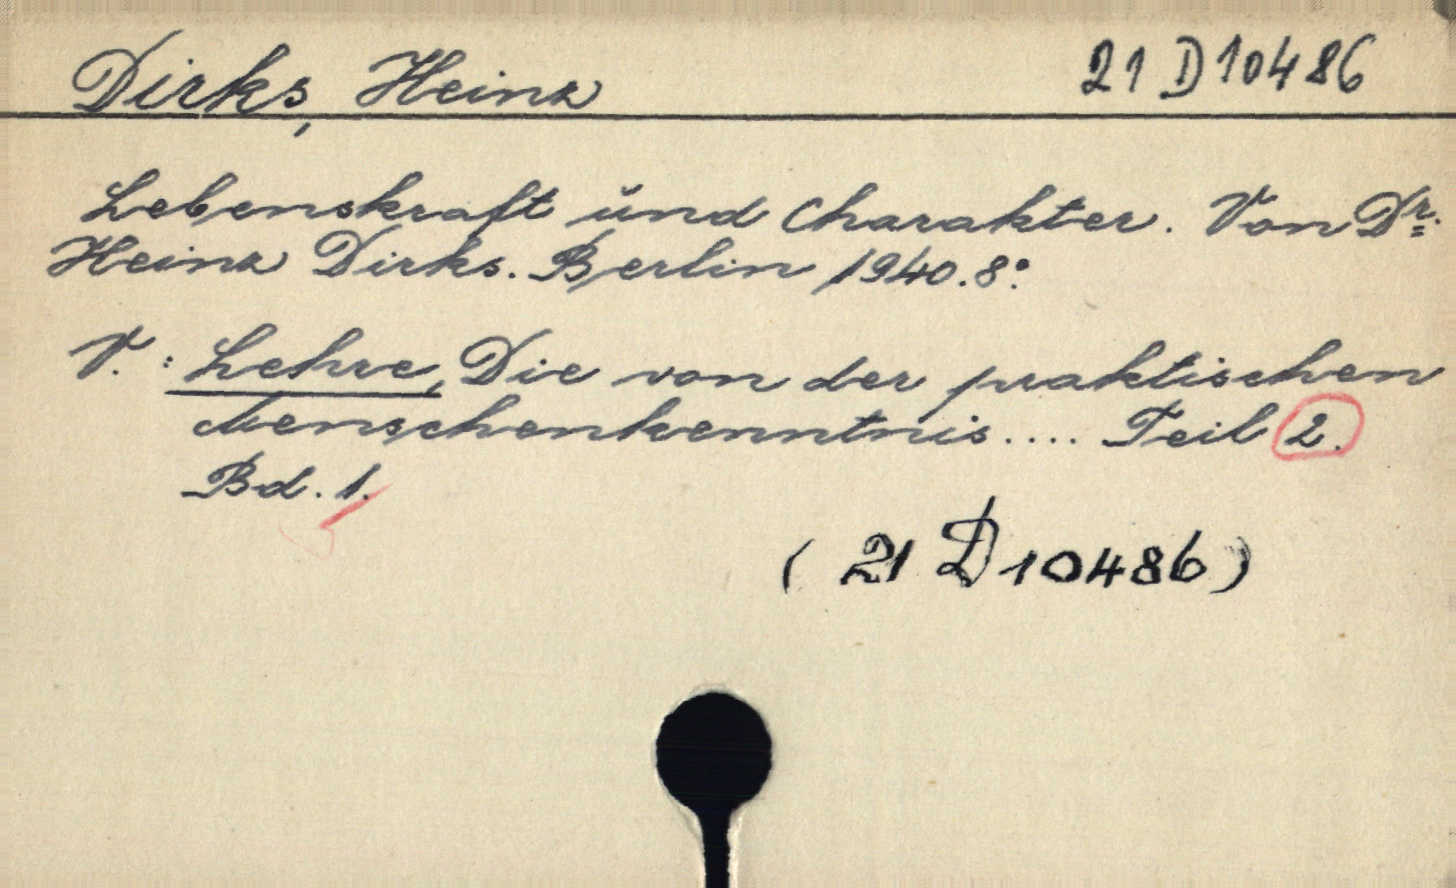 Dirks, Heinz
21 D 10486
Lebenskraft und Charakter. Von Dr.
Heinz Dirks. Berlin 1940. 8°.
V.: Lehre, Die von der praktischen
Menschenkenntnis.... Teil 2.
Bd. 1.
(21 D 10486)